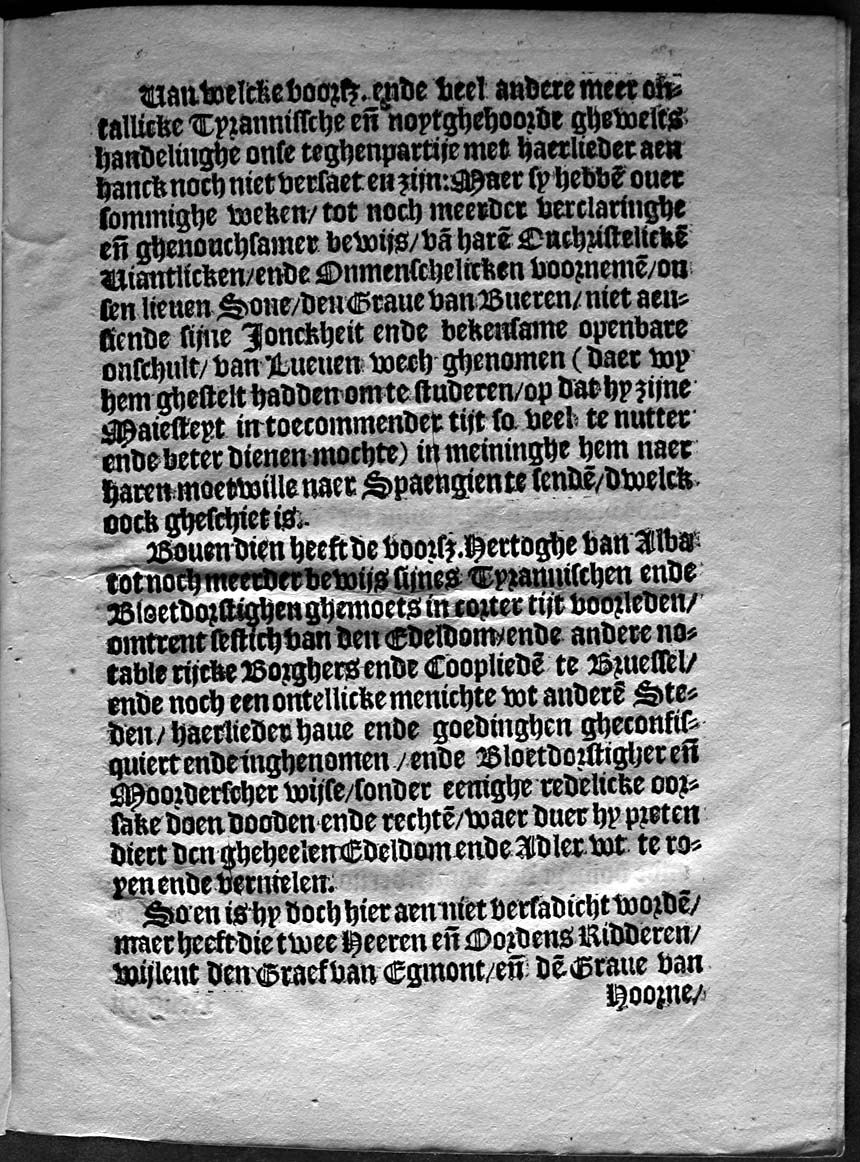 Van welcke voorsz. ende veel andere meer on-
tallicke Tyrannissche eñ noytghehoorde ghewelts
handelinghe onse teghenpartije met haerlieder aen
hanck noch niet versaet en zijn: Maer sy hebbẽ ouer
sommighe weken/ tot noch meerder verclaringhe
eñ ghenouchsamer bewijs/ vã harẽ Onchristelickẽ
Viantlicken/ ende Onmenschelicken voornemẽ/ on
sen lieuen Sone/ den Graue van Bueren/ niet aen-
siende sijne Jonckheit ende bekensame openbare
onschult/ van Lueuen wech ghenomen (daer wy
hem ghestelt hadden om te studeren/ op dat hy zijne
Maiesteyt in toecommender tijt so veel te nutter
ende beter dienen mochte) in meininghe hem naer
haren moetwille naer Spaengien te sendẽ/ dwelck
oock gheschiet is.
Bouen dien heeft de voorsz. Hertoghe van Alba
tot noch meerder bewijs sijnes Tyrannischen ende
Bloetdorstighen ghemoets in corter tijt voorleden/
omtrent sestich van den Edeldom/ ende andere no-
table rijcke Borghers ende Coopliedẽ te Bruessel/
ende noch een ontellicke menichte wt anderẽ Ste-
den/ haerlieder haue ende goedinghen gheconfis-
quiert ende inghenomen/ ende Bloetdorstigher eñ
Moorderscher wijse/ sonder eenighe redelicke oor-
sake doen dooden ende rechtẽ/ waer duer hy preten
diert den gheheelen Edeldom ende Adler wt te ro-
yen ende vernielen.
So en is hy doch hier aen niet versadicht wordẽ/
maer heeft die twee Heeren eñ Oordens Ridderen/
wijlent den Graef van Egmont/ eñ dẽ Graue van
Hoorne/